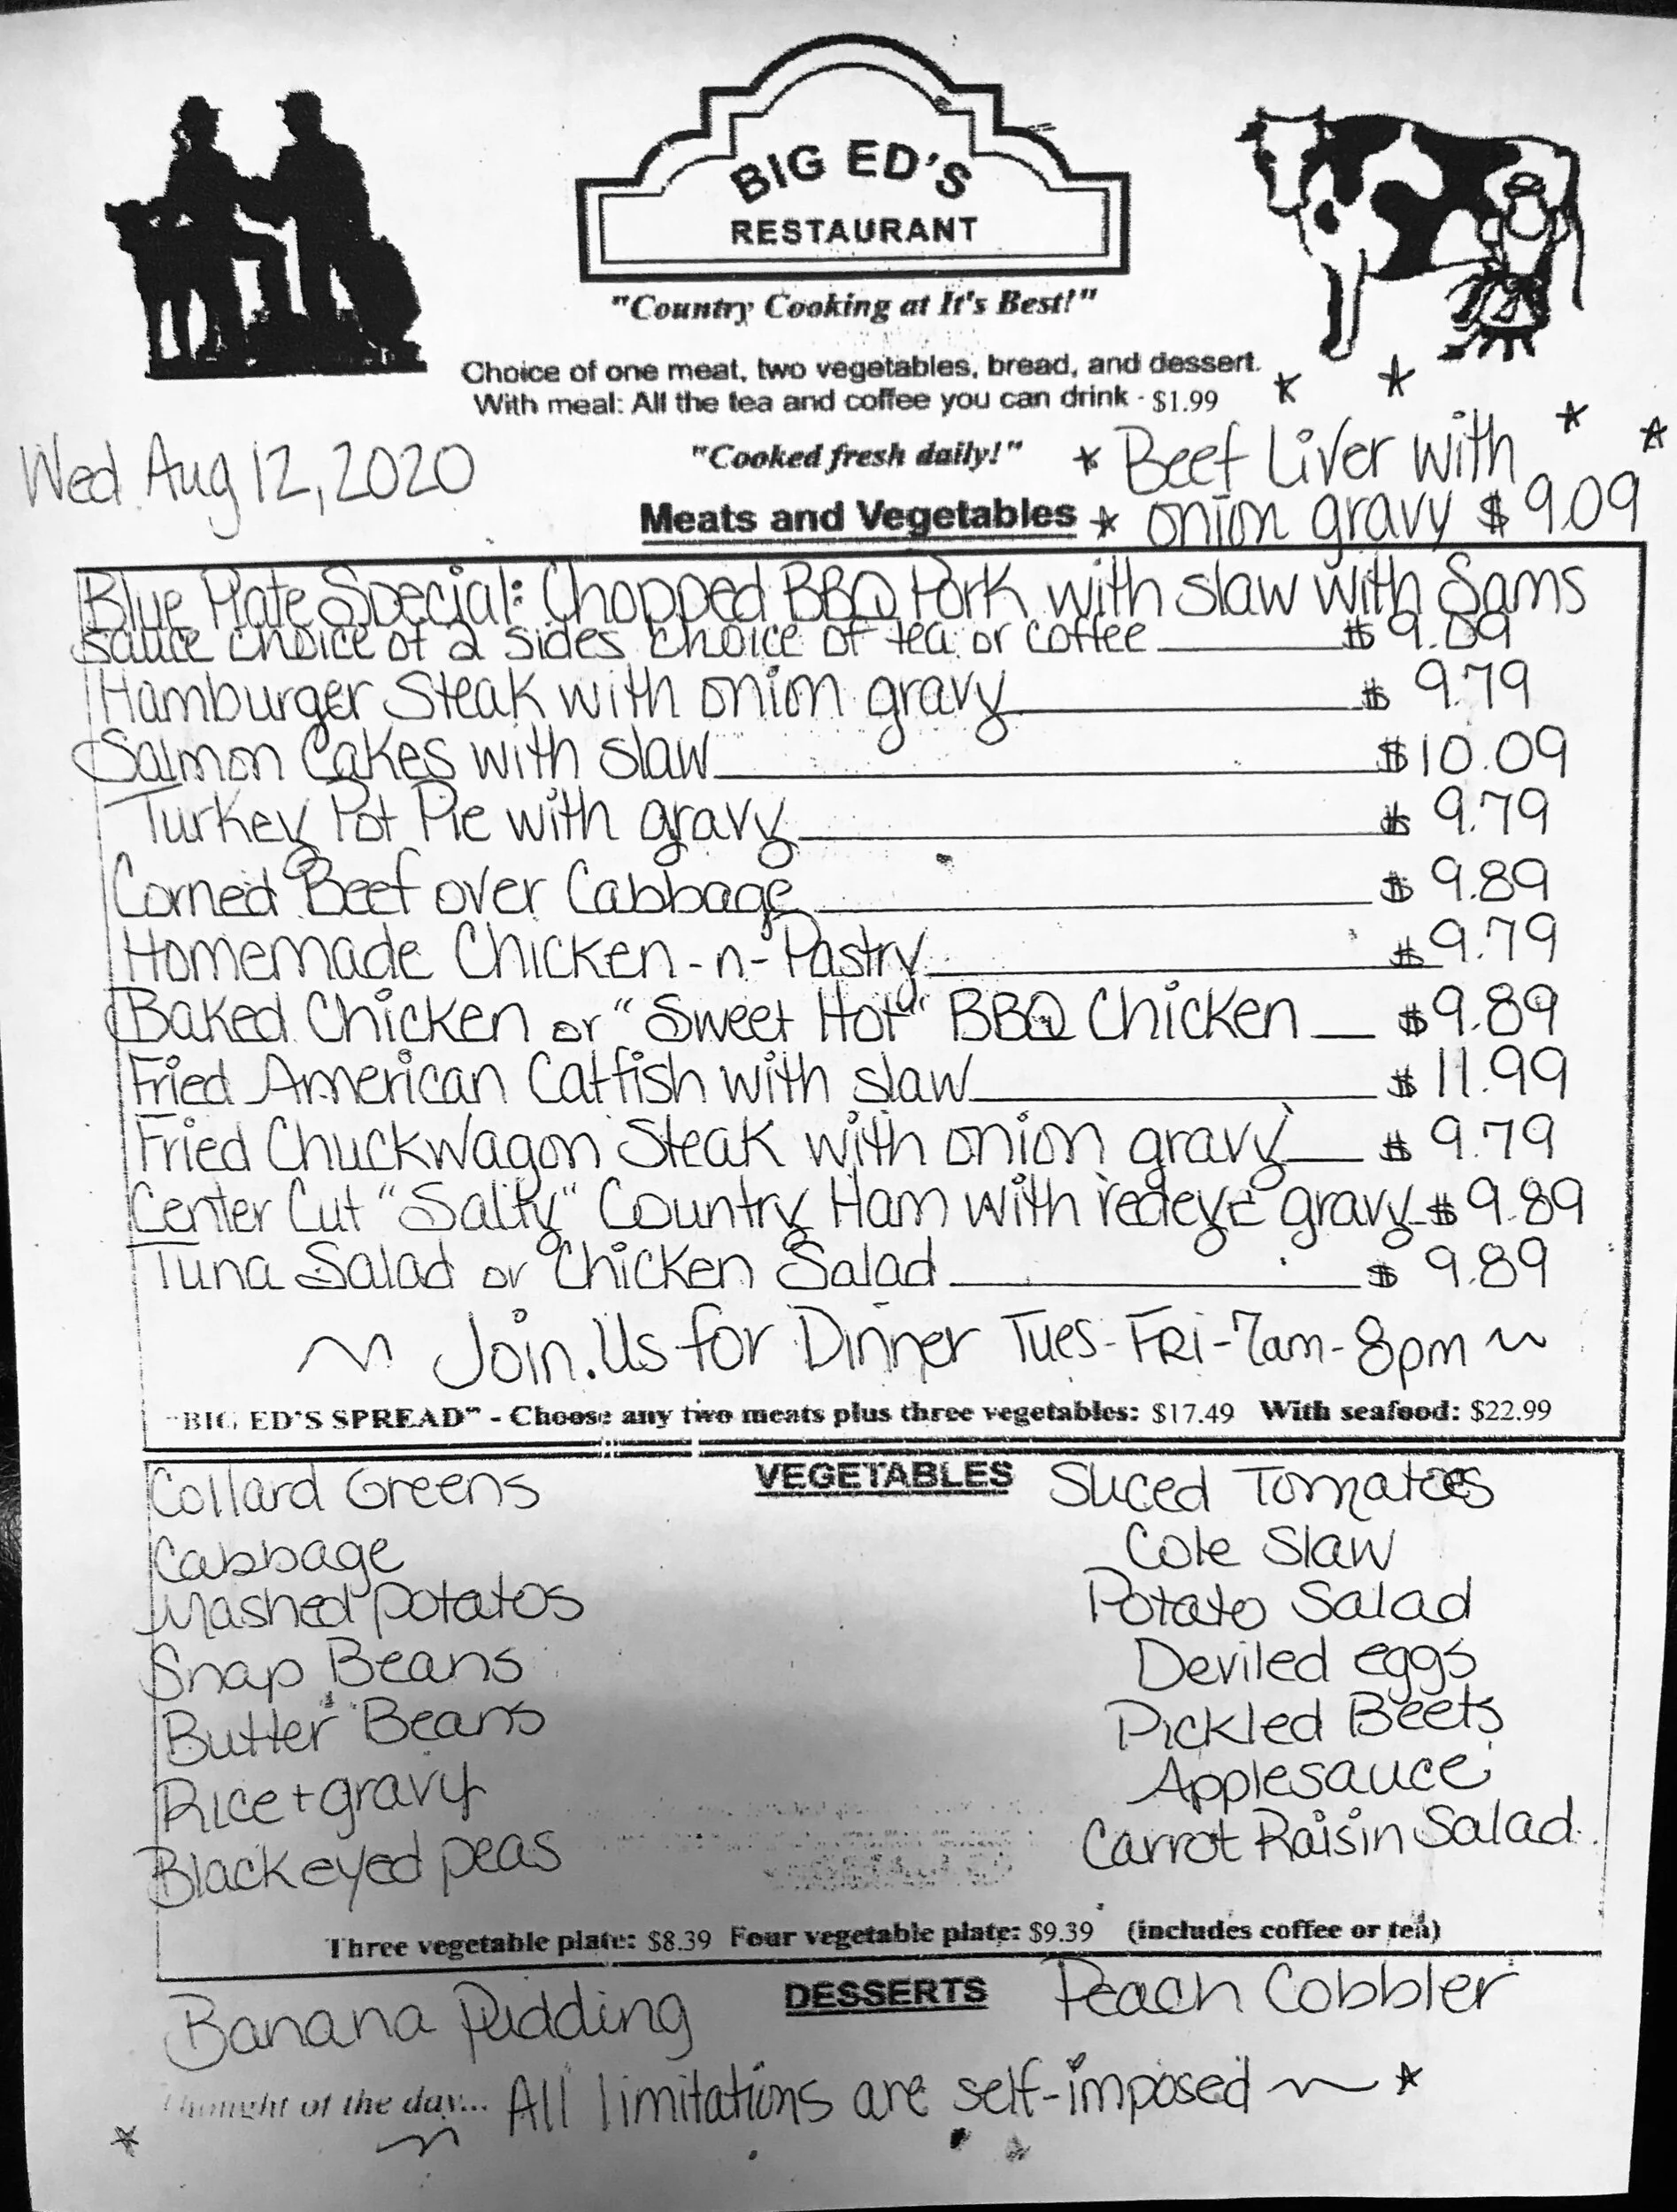 BIG ED'S
RESTAURANT
"Country Cooking at It's Best!"
Choice of one meat, two vegetables, bread, and dessert.
With meal: All the tea and coffee you can drink - $1.99
"Cooked fresh daily!"
Wed. Aug 12, 2020
* Beef Liver with
Meats and Vegetables * onion gravy $ 9.09
Blue Plate Special: Chopped BBQ Pork with slaw with Sams
sauce choice of 2 sides choice of tea or coffee $ 9.09
Hamburger Steak with onion gravy $ 9.79
Salmon Cakes with slaw $10.09
Turkey Pot Pie with gravy $ 9.79
Corned Beef over Cabbage $ 9.89
Homemade Chicken-n-Pastry $9.79
Baked Chicken or "Sweet Hot" BBQ Chicken $9.89
Fried American Catfish with slaw $ 11.99
Fried Chuckwagon Steak with onion gravy $ 9.79
Center Cut "Salty" Country Ham with redeye gravy $ 9.89
Tuna Salad or Chicken Salad $ 9.89
~ Join Us for Dinner Tues-FRi-7am-8pm ~
"BIG ED'S SPREAD" - Choose any two meats plus three vegetables: $17.49 With seafood: $22.99
VEGETABLES
Collard Greens
Cabbage
Mashed potatos
Snap Beans
Butter Beans
Rice + gravy
Black eyed peas
Sliced Tomatoes
Cole Slaw
Potato Salad
Deviled eggs
Pickled Beets
Applesauce
Carrot Raisin Salad
Three vegetable plate: $8.39 Four vegetable plate: $9.39 (includes coffee or tea)
DESSERTS
Banana Pudding
Peach Cobbler
Thought of the day... All limitations are self-imposed ~ *